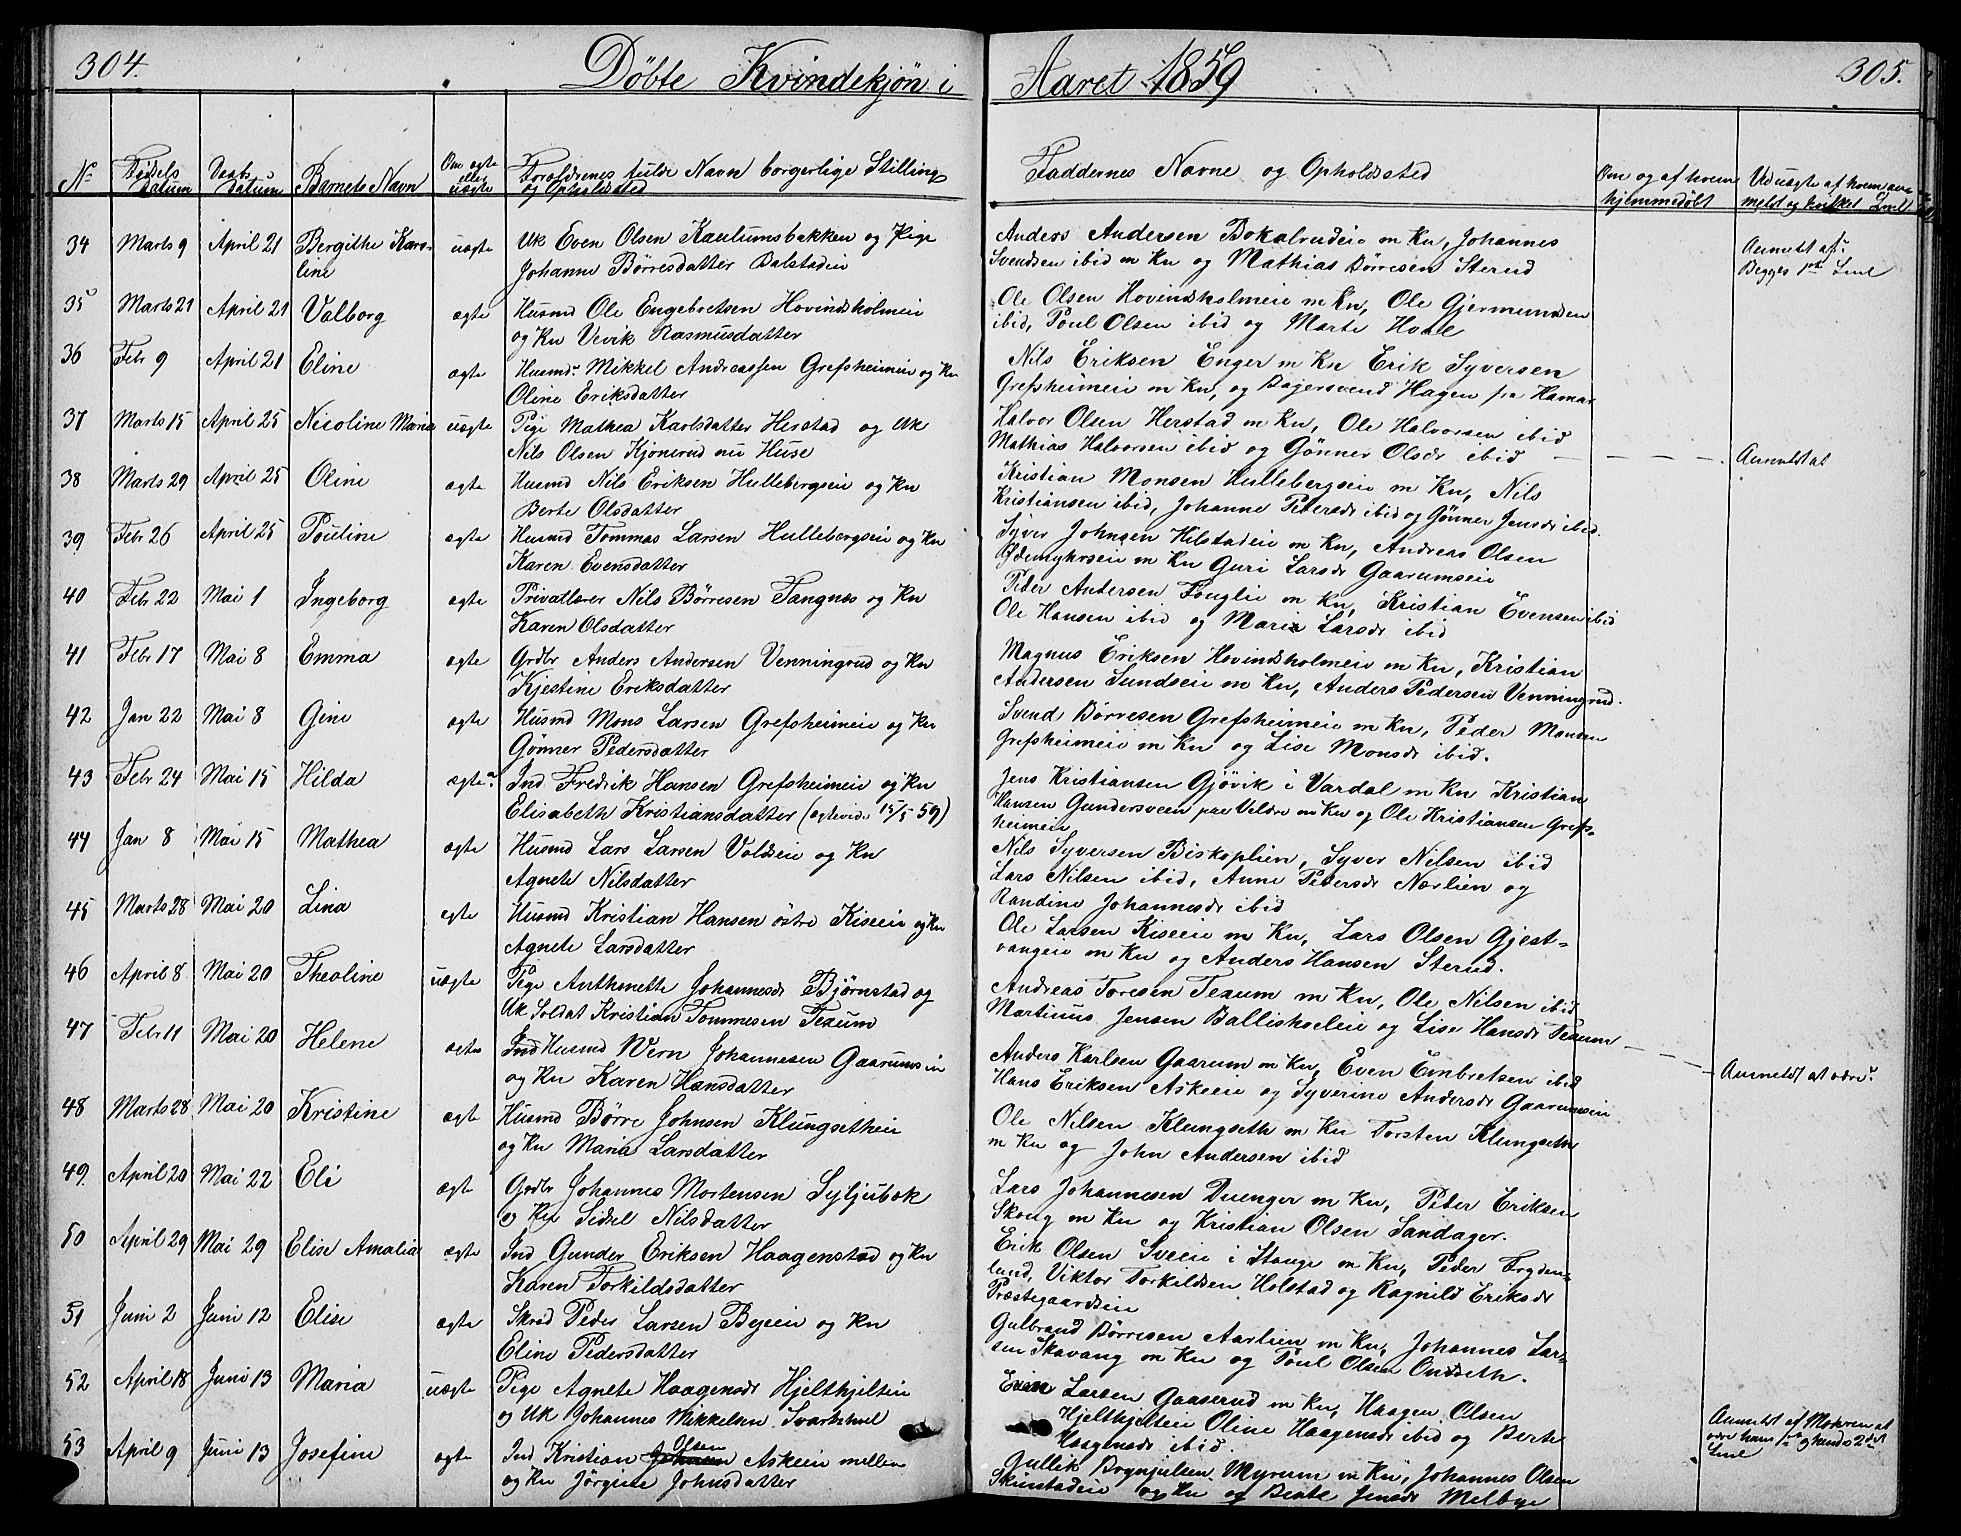 304.
Döbte Kvindekjøn i Aaret 1859
305.
No
Fødsels datum
Daabs datum
Barnets Navn
Om ægte eller uægte
Forældrenes fulde Navn borgerlige Stilling og Opholdssted
Faddernes Navne og Opholdssted
Om og af hvem hjemmedøbt
34 Marts 9 April 21 Bergithe Karoline uægte Uk Even Olsen Kaulumsbakken og Pige
Johanne Börresdatter Balstadeie
Anders Andersen Bokalrudeie m Kn, Johannes
Svendsen ibid m Kn og Mathias Börresen Sterud
Anmeldt af
Begges 1ste Leiel
35 Marts 21 April 21 Valborg ægte Husmd Ole Engebretsen Hovindsholmeie
og Kn Vevik Rasmusdatter
Ole Olsen Hovindsholmeie m Kn, Ole Gjermundsen
ibid, Poul Olsen ibid og Marte Hoel
36 Febr 9 April 21 Eline ægte Husmd. Mikkel Andreassen Grefsheimeie og Kn
Oline Eriksdatter
Nils Eriksen Enger m Kn Erik Syversen
Grefsheimeie m Kn, og Dagersvend Hagen fra Hamar
37 Marts 15 April 25 Nicoline Maria uægte Pige Mathea Karlsdatter Herstad og Uk
Nils Olsen Kjonerud nu Huse
Halvor Olsen Herstad m Kn, Ole Halvorsen ibid
Mathias Halvorsen ibid og Gønner Olsdr ibid
Anmeldt at
38 Marts 29 April 25 Oline ægte Husmd Nils Eriksen Hullebergseie og Kn
Berte Olsdatter
Kristian Monsen Hullebergseie m Kn, Nils
Kristiansen ibid, Johanne Pedersdr ibid og Gønner Jensdr ibid.
39 Febr 26 April 25 Pouline ægte Husmd Tommas Larsen Hullebergseie og Kn
Karen Evensdatter
Syver Johnsen Hilstadeie m Kn, Andreas Olsen
Ødemyhrseie m Kn Guri Larsdr Gaarumseie
40 Febr 22 Mai 1 Ingeborg ægte Privatlærer Nils Børresen Tangnes og Kn
Karen Olsdatter
Peder Andersen Fouglie m Kn, Kristian Evensen ibid
Ole Hansen ibid og Maria Larsdr ibid
41 Febr 17 Mai 8 Emma ægte Grdbr Anders Andersen Venningrud og Kn
Kjestine Eriksdatter
Magnus Eriksen Hovindsholmeie m Kn, Kristian
Andersen Sundseie m Kn, Anders Pedersen Venningrud.
42 Jan 22 Mai 8 Gine ægte Husmd Mons Larsen Grefsheimeie og Kn
Gønner Pedersdatter
Svend Børresen Grefsheimeie m Kn, Peder Monsen
Grefsheimeie m Kn og Lise Monsdr ibid.
43 Febr 24 Mai 15 Hilda ægte Ind Fredrik Hansen Grefsheimeie og Kn
Elisabeth Kristiansdatter (ægtevid. 15/5 59)
Jens Kristiansen Gjøvik i Vardal m Kn Kristian
Hansen Gundersveen paa Veldre m Kn og Ole Kristiansen Grefsheimeie
44 Jan 8 Mai 15 Mathea ægte Husmd Lars Larsen Voldseie og Kn
Agnete Nilsdatter
Nils Syversen Biskoplien, Syver Nilsen ibid
Lars Nilsen ibid, Anne Pedersdr Nærlien og
Randine Johannesdr ibid
45 Marts 28 Mai 20 Lina egte Husmd Kristian Hansen östre Kiseeie og Kn
Agnete Larsdatter
Ole Larsen Kiseeie m Kn, Lars Olsen Gjestvangeie m Kn og Anders Hansen Sterud.
46 April 8 Mai 20 Theoline uægte Pige Anthonette Johannesdr Bjørnstad og
Uk Soldat Kristian Tommesen Texum
Andreas Toresen Texum m Kn, Ole Nilsen ibid
Martinus Jensen Balliskoeleie og Lise Hansdr Texum
47 Febr 11 Mai 20 Helene ægte Ind Husmd Wern Johannesen Gaarumseie
og Kn Karen Hansdatter
Anders Karlsen Gaarum m Kn, Even Embretsen ibid
Hans Eriksen Askeeie og Syverine Andersdr Gaarumseie
Anmeldt at være
48 Marts 28 Mai 20 Kristine ægte Husmd Börre Johnsen Klungsetheie
og Kn Maria Larsdatter
Ole Nilsen Klungseth m Kn Torsten Klungseth
m Kn og John Andersen ibid
49 April 20 Mai 22 Eli ægte Grdbr Johannes Mortensen Syljubæk
og Kn Sidsel Nilsdatter
Lars Johannesen Duenger m Kn, Peder Eriksen
Skoug m Kn og Kristian Olsen Sandager.
50 April 29 Mai 29 Elise Amalia ægte Ind Gunder Eriksen Haagenstad og Kn
Karen Torkildsdatter
Erik Olsen Sveeie i Stange m Kn, Peder Frydenlund, Viktor Torkildsen Holstad og Ragnild Eriksdr
Præstegaardseie
51 Juni 2 Juni 12 Elise ægte Skræd Peder Larsen Byeeie og Kn
Eline Pedersdatter
Gulbrand Börresen Aarlien m Kn, Johannes Larsen Skavang m Kn og Poul Olsen Onseth.
52 April 18 Juni 13 Maria uægte Pige Agnete Haagensdr Hjelthjelteie
og Uk Johannes Mikkelsen Svartshoel
Even Larsen Gaaserud m Kn, Haagen Olsen
Hjelthjelteie Oline Haagensdr ibid og Berte
Haagensdr ibid.
53 April 9 Juni 13 Josefine ægte Ind Kristian Olsen Askeeie mellem
og Kn Jörgine Johnsdatter
Gullik Brynjulsen Myrum m Kn, Johannes Olsen
Skiustadeie og Kn og Berte Jensdr Melbye
Anmeldt af Moderen at
være hans 1ste og hendes 2det
Leiel